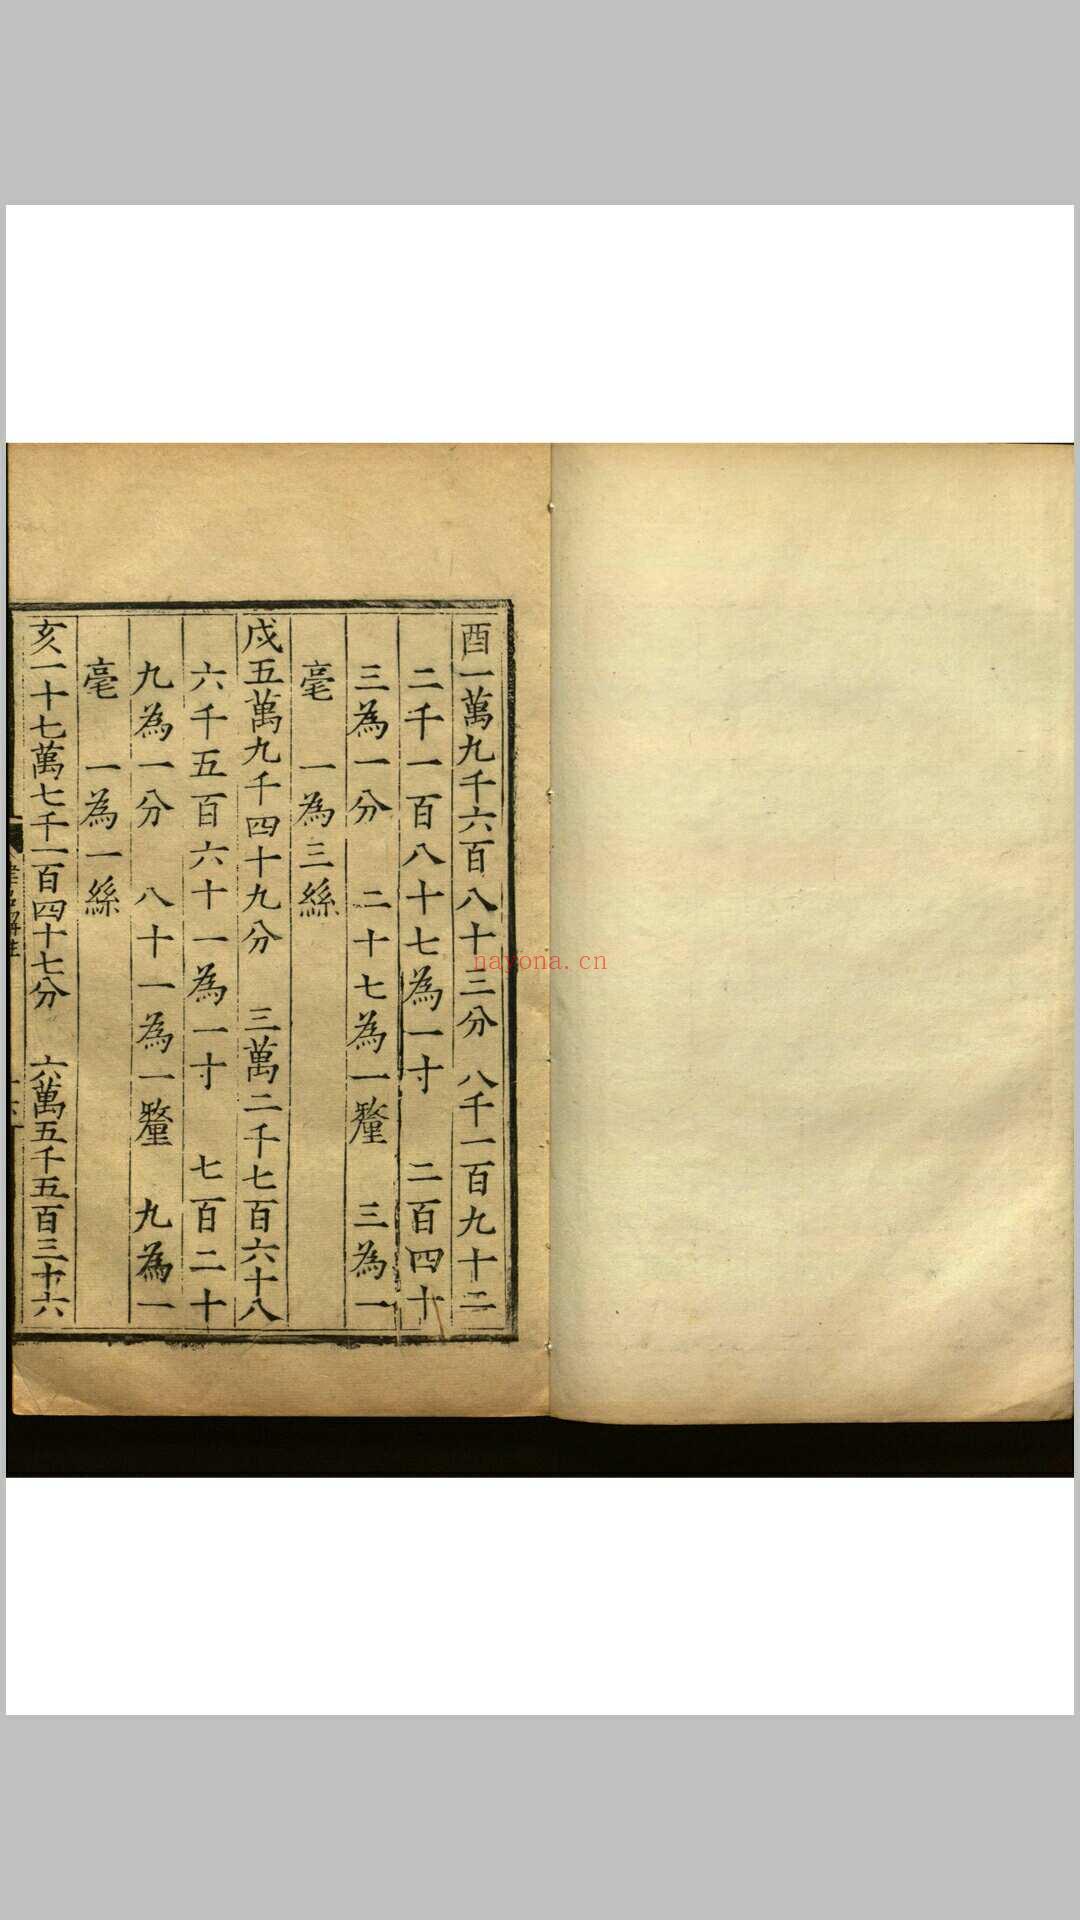 酉一萬九千六百八十三分　八千一百九十二
二千一百八十七為一寸　二百四十
三為一分　二十七為一釐　三為一
毫　一為三絲
戌五萬九千四十九分　三萬二千七百六十八
六千五百六十一為一寸　七百二十
九為一分　八十一為一釐　九為一
毫　一為一絲
亥一十七萬七千一百四十七分　六萬五千五百三十六
nayona.cn